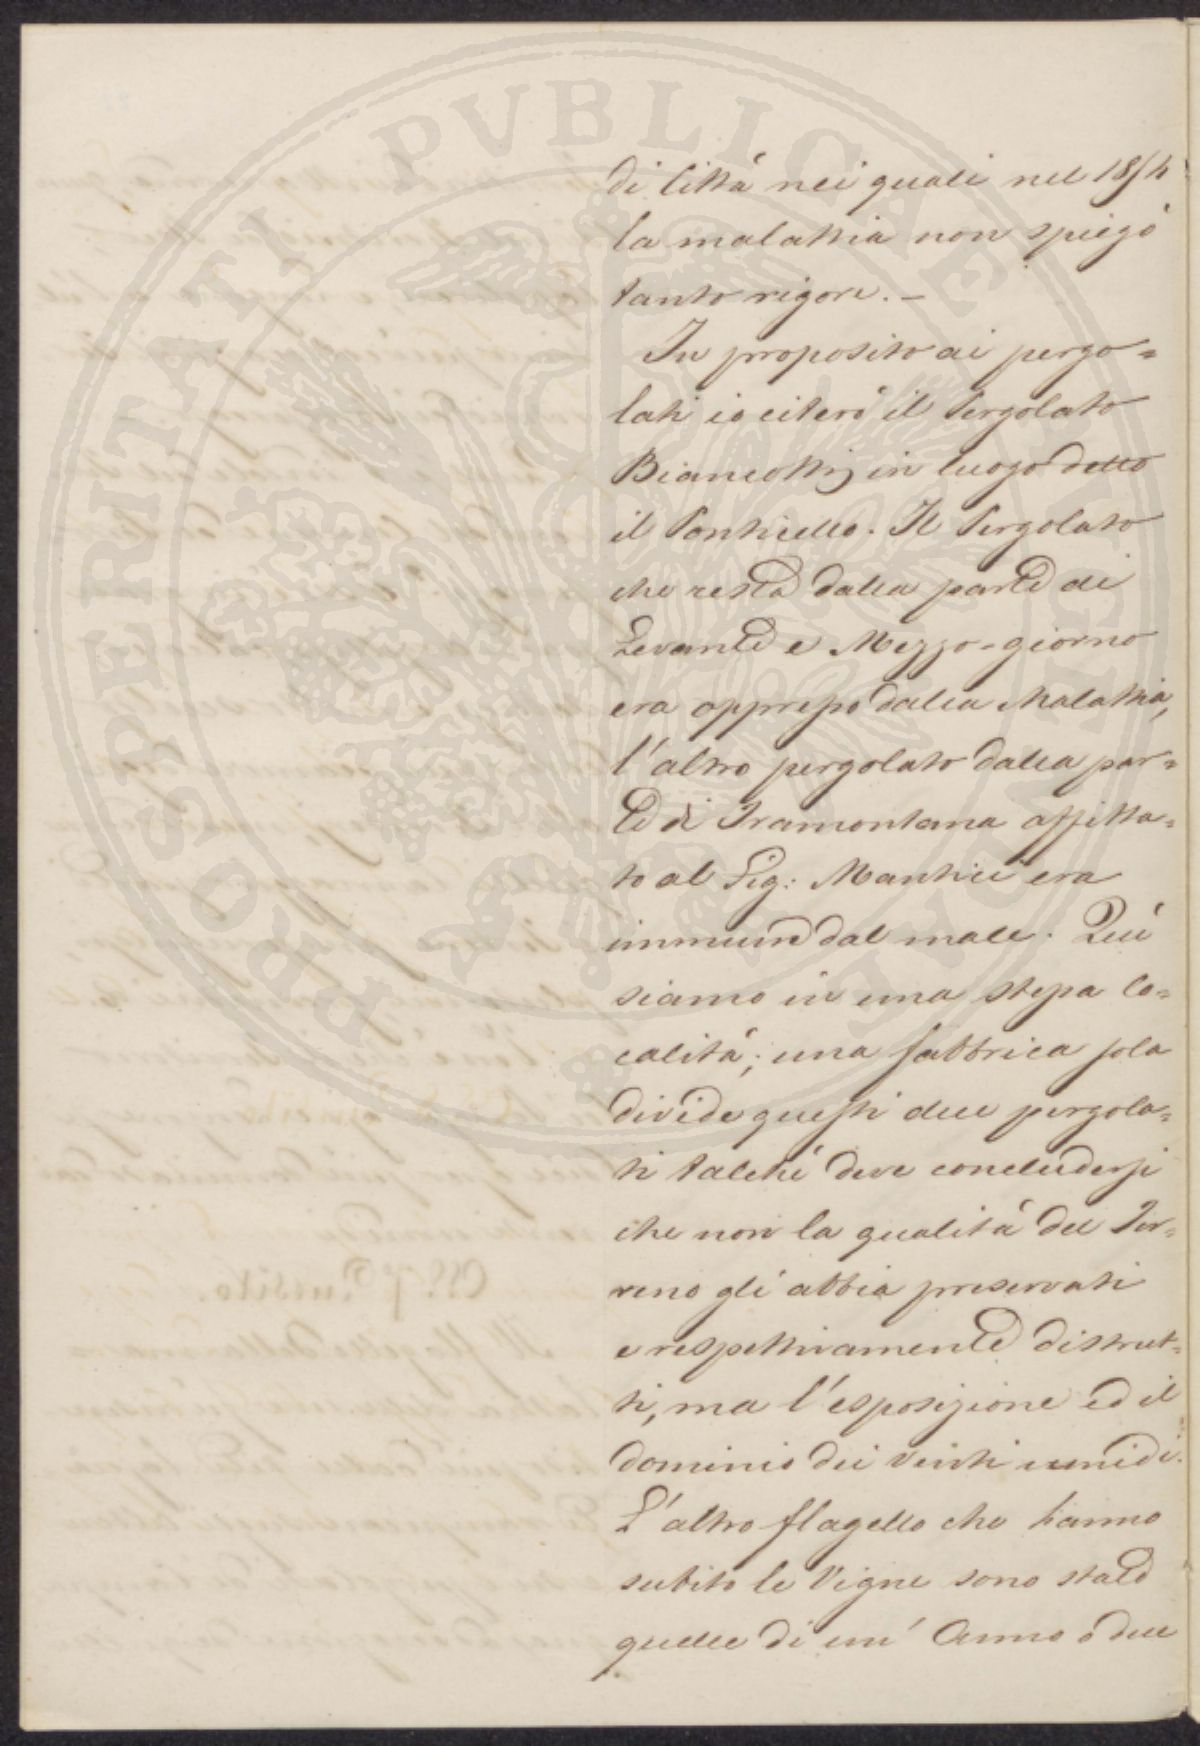 PROSPERITATI PVBLICAE
di Città nei quali nel 1854
la malattia non spiegò
tanto rigore. —
In proposito di pergo=
lati io citerò il Pergolato
Biancotti in luogo detto
il Ponticello. Il Pergolato
che resta dalla parte di
Levante e Mezzo-giorno
era oppresso dalla Malattia,
l'altro pergolato dalla par=
te di Tramontana affitta=
to al Sig: Mantici era
immune dal male. Quì
siamo in una stessa lo=
calità; una fabbrica sola
divide questi due pergola=
ti talchè deve concludersi
che non la qualità del Ter=
reno gli abbia preservati
e respettivamente distrut=
ti, ma l'esposizione ed il
dominio dei venti umidi.
L'altro flagello che hanno
subito le Vigne sono state
quelle di un' Anno o due